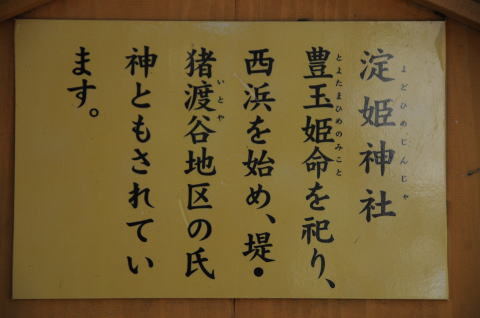 淀姫神社
よどひめじんじゃ
豊玉姫命を祀り、
とよたまひめのみこと
西浜を始め、堤・
猪渡谷地区の氏
いとや
神ともされてい
ます。